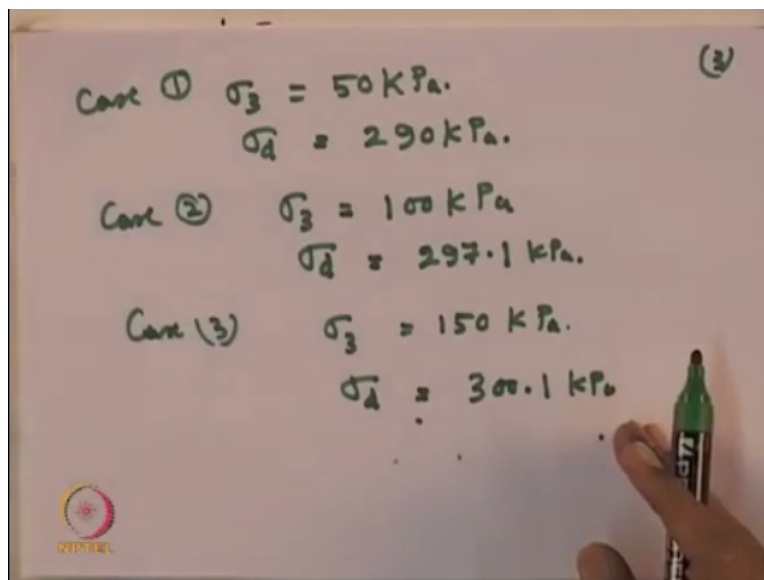 (3)
Case ① σ3 = 50 kPa.
σd = 290 kPa.
Case ② σ3 = 100 kPa
σd = 297.1 kPa.
Case (3) σ3 = 150 kPa.
σd = 300.1 kPa
NPTEL